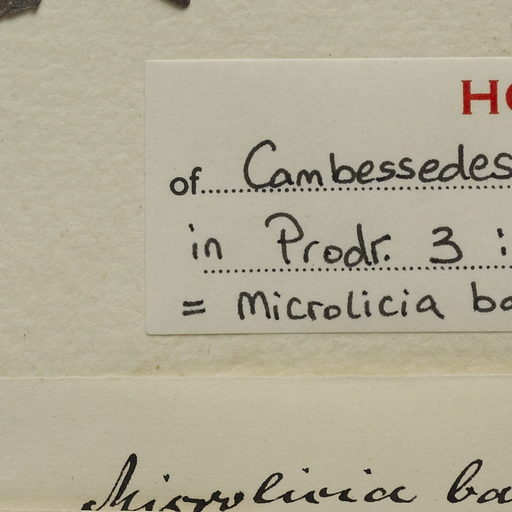 HO
of Cambessedes
in Prodr. 3 :
= Microlicia ba
Microlicia ba